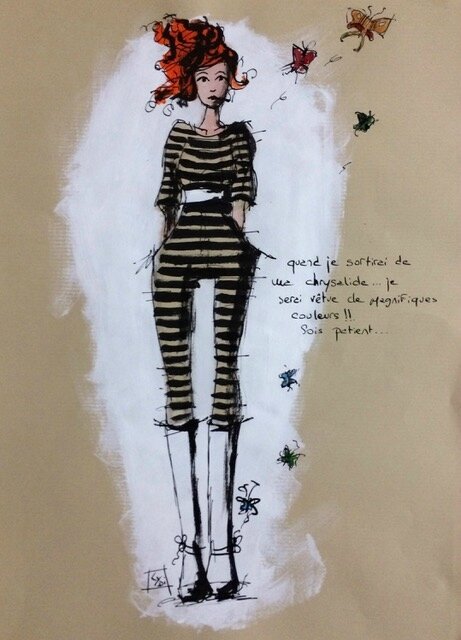 quand je sortirai de
ma chrysalide... je
serai vêtue de magnifiques
couleurs!!
Sois patient...